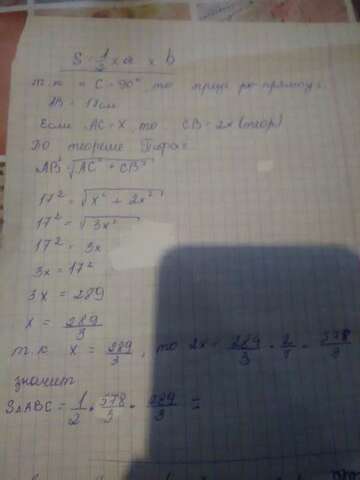 S = 1/2 × a × b
т.к С = 90°, то треуг
AB = 17см
Если AC = X, то CB = 2x (теор)
По теореме Пифаг
AB² = √AC² + CB²
17² = √X² + 2x²
17² = √3x²
17² = 3x
3x = 17²
3x = 289
x = 289/3
т.к x = 289/3, то 2x = 289/3 · 2/1 = 578/3
значит
S△ABC = 1/2 · 578/3 · 289/3 =